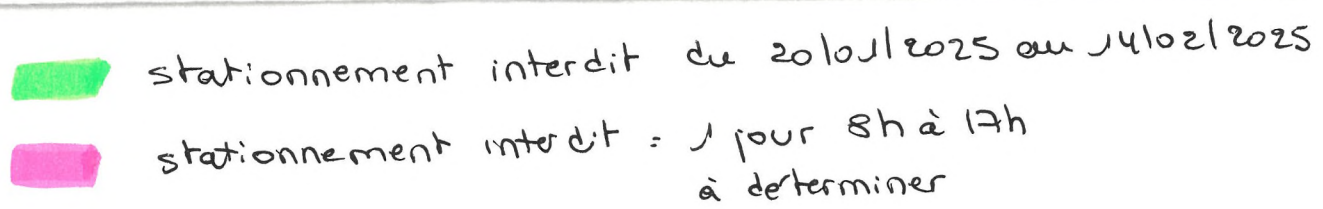 stationnement interdit du 20/01/2025 au 14/02/2025
stationnement interdit : 1 jour 8h à 17h
à determiner